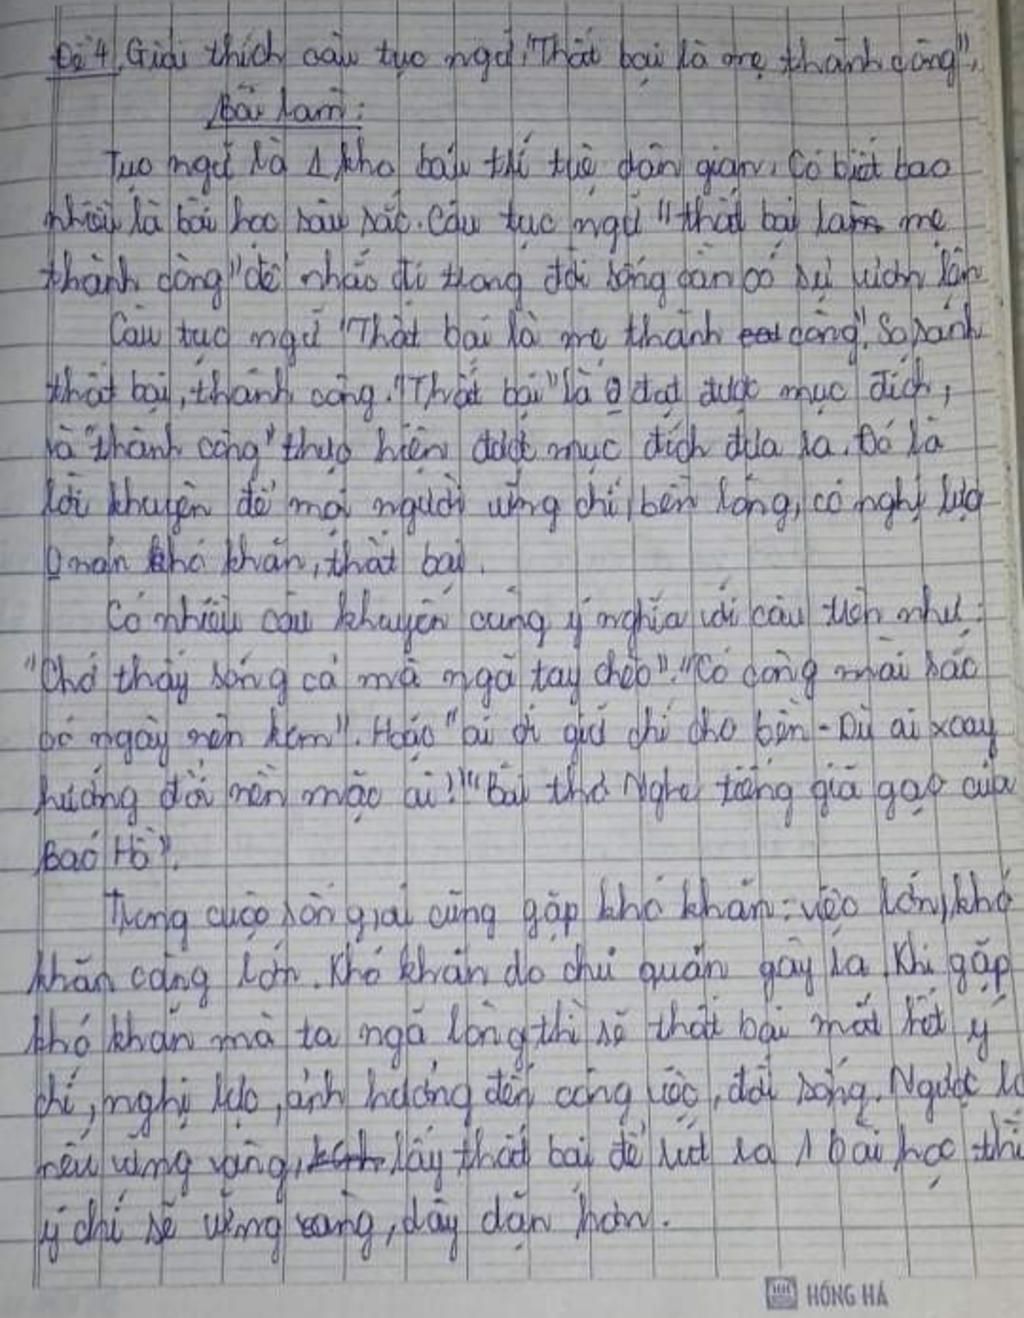 Đề 4, Giải thích câu tục ngữ "Thất bại là mẹ thành công",
Bài làm:
Tục ngữ là 1 kho báu trí tuệ dân gian, Có biết bao
nhiêu là bài học sâu sắc. Câu tục ngữ "thất bại làm mẹ
thành công" để nhắc đi trong đời sống cần có sự
Câu tục ngữ "Thất bại là mẹ thành công". So sánh
thất bại, thành công. "Thất bại" là 0 đạt được mục đích,
là "thành công" thực hiện được mục đích đưa ra. Đó là
lời khuyên để mọi người vững chí, bền lòng, có nghị lực
0 nản khó khăn, thất bại.
Có nhiều câu khuyên cùng ý nghĩa với câu trên như:
"Chớ thấy sóng cả mà ngã tay chèo". "Có công mài sắc
có ngày nên kim". Hoặc "ai ơi giữ chí cho bền - Dù ai xoay
hướng đổi nền mặc ai!" "Bài thơ Nghe tiếng giã gạo của
Bác Hồ".
Trong cuộc sống ai cũng gặp khó khăn: việc lớn, khó
khăn càng lớn. Khó khăn do chủ quan gây ra. Khi gặp
khó khăn mà ta ngã lòng thì sẽ thất bại mất hết ý
chí, nghị lực, ảnh hưởng đến công việc, đời sống. Ngược lạ
nếu vững vàng, lấy thất bại để rút ra 1 bài học thì
ý chí sẽ vững vàng, dày dặn hơn.
HỒNG HÀ